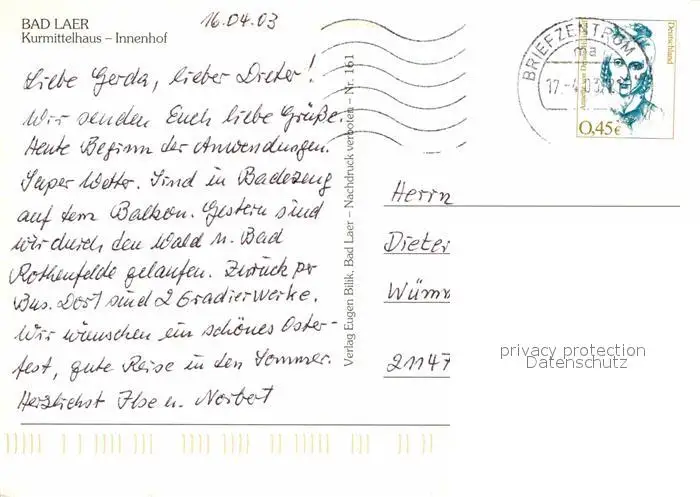 BAD LAER
Kurmittelhaus – Innenhof
16.04.03
Liebe Gerda, lieber Dieter!
Wir senden Euch liebe Grüße.
Heute Beginn der Anwendungen.
Super Wetter. Sind in Badezeug
auf dem Balkon. Gestern sind
wir durch den Wald n. Bad
Rothenfelde gelaufen. Zurück per
Bus. Dort sind 2 Gradierwerke.
Wir wünschen ein schönes Oster-
fest, gute Reise in den Sommer.
Herzlichst Ilse u. Norbert
Verlag Eugen Bilik, Bad Laer – Nachdruck verboten – Nr. 161
BRIEFZENTRUM
ma
17.-4.03
Deutschland
0,45€
Herrn
Dieter
Wümr
21147
privacy protection
Datenschutz